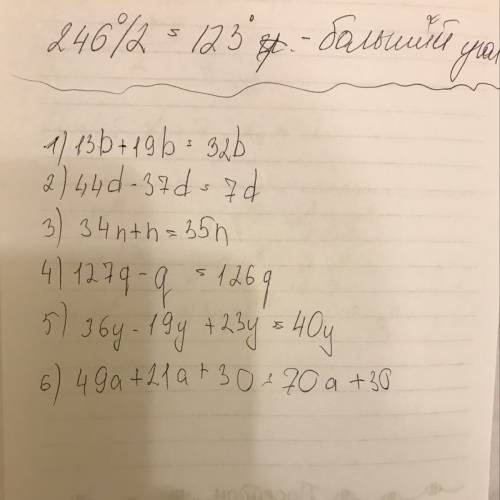 246°/2 = 123° - больший угол
1) 13b + 19b = 32b
2) 44d - 37d = 7d
3) 34n + n = 35n
4) 127q - q = 126q
5) 36y - 19y + 23y = 40y
6) 49a + 21a + 30 = 70a + 30